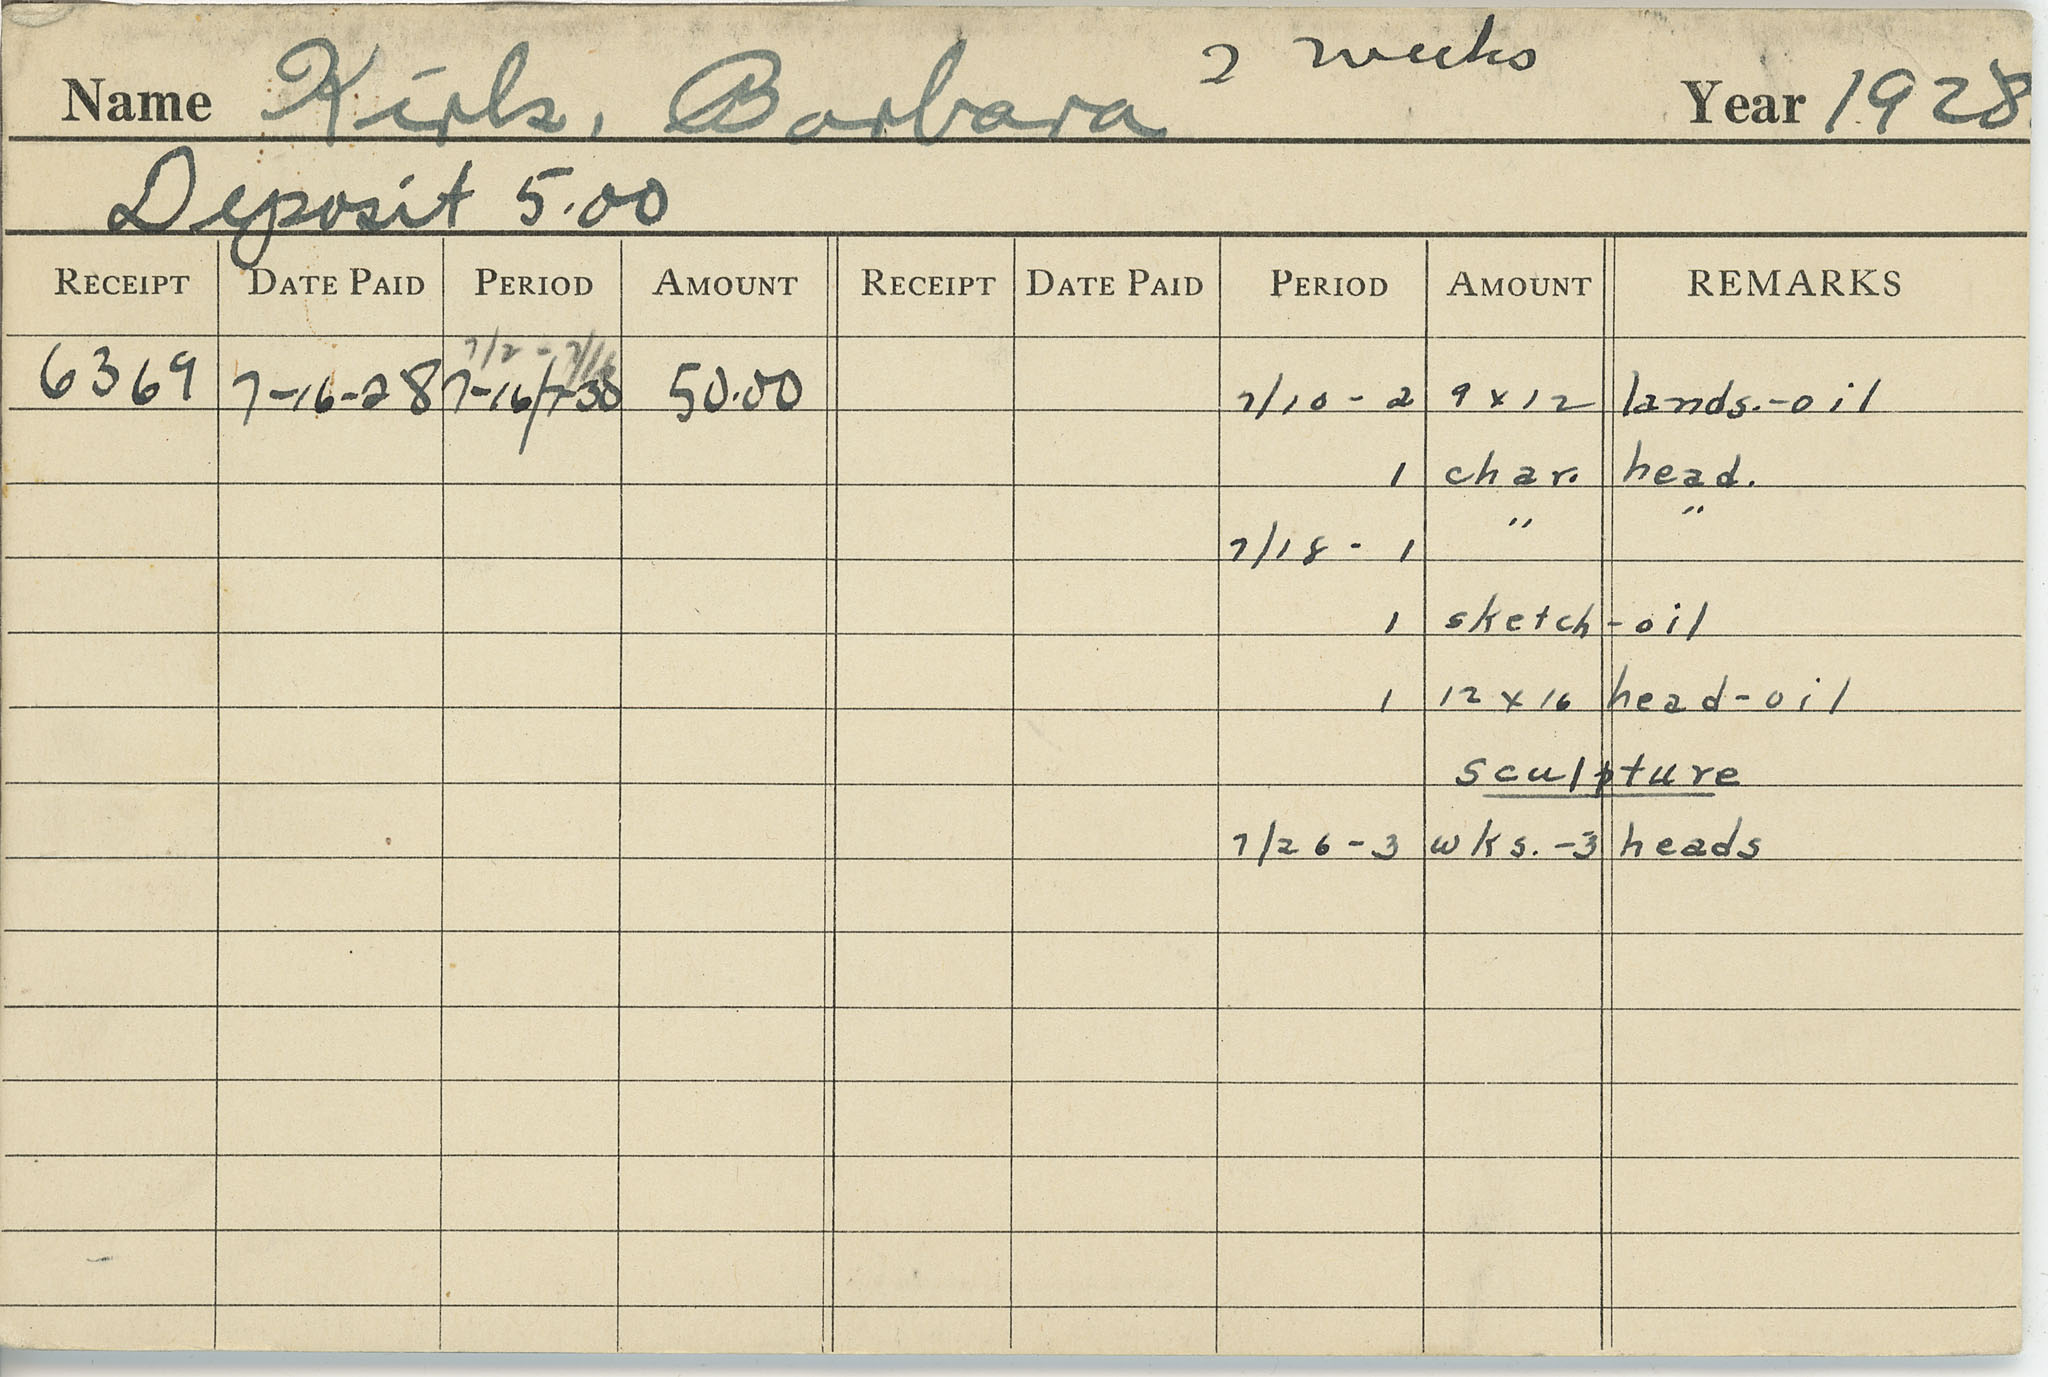 Name Kirk, Barbara 2 weeks Year 1928.
Deposit 5.00
RECEIPT DATE PAID PERIOD AMOUNT RECEIPT DATE PAID PERIOD AMOUNT REMARKS
7/2 - 7/16
6369 7-16-28 7-16/7-30 50.00 7/10 - 2 9 x 12 lands.-oil
1 char. head.
7/18 - 1 " "
1 sketch-oil
1 12 x 16 head-oil
sculpture
7/26 - 3 wks. - 3 heads